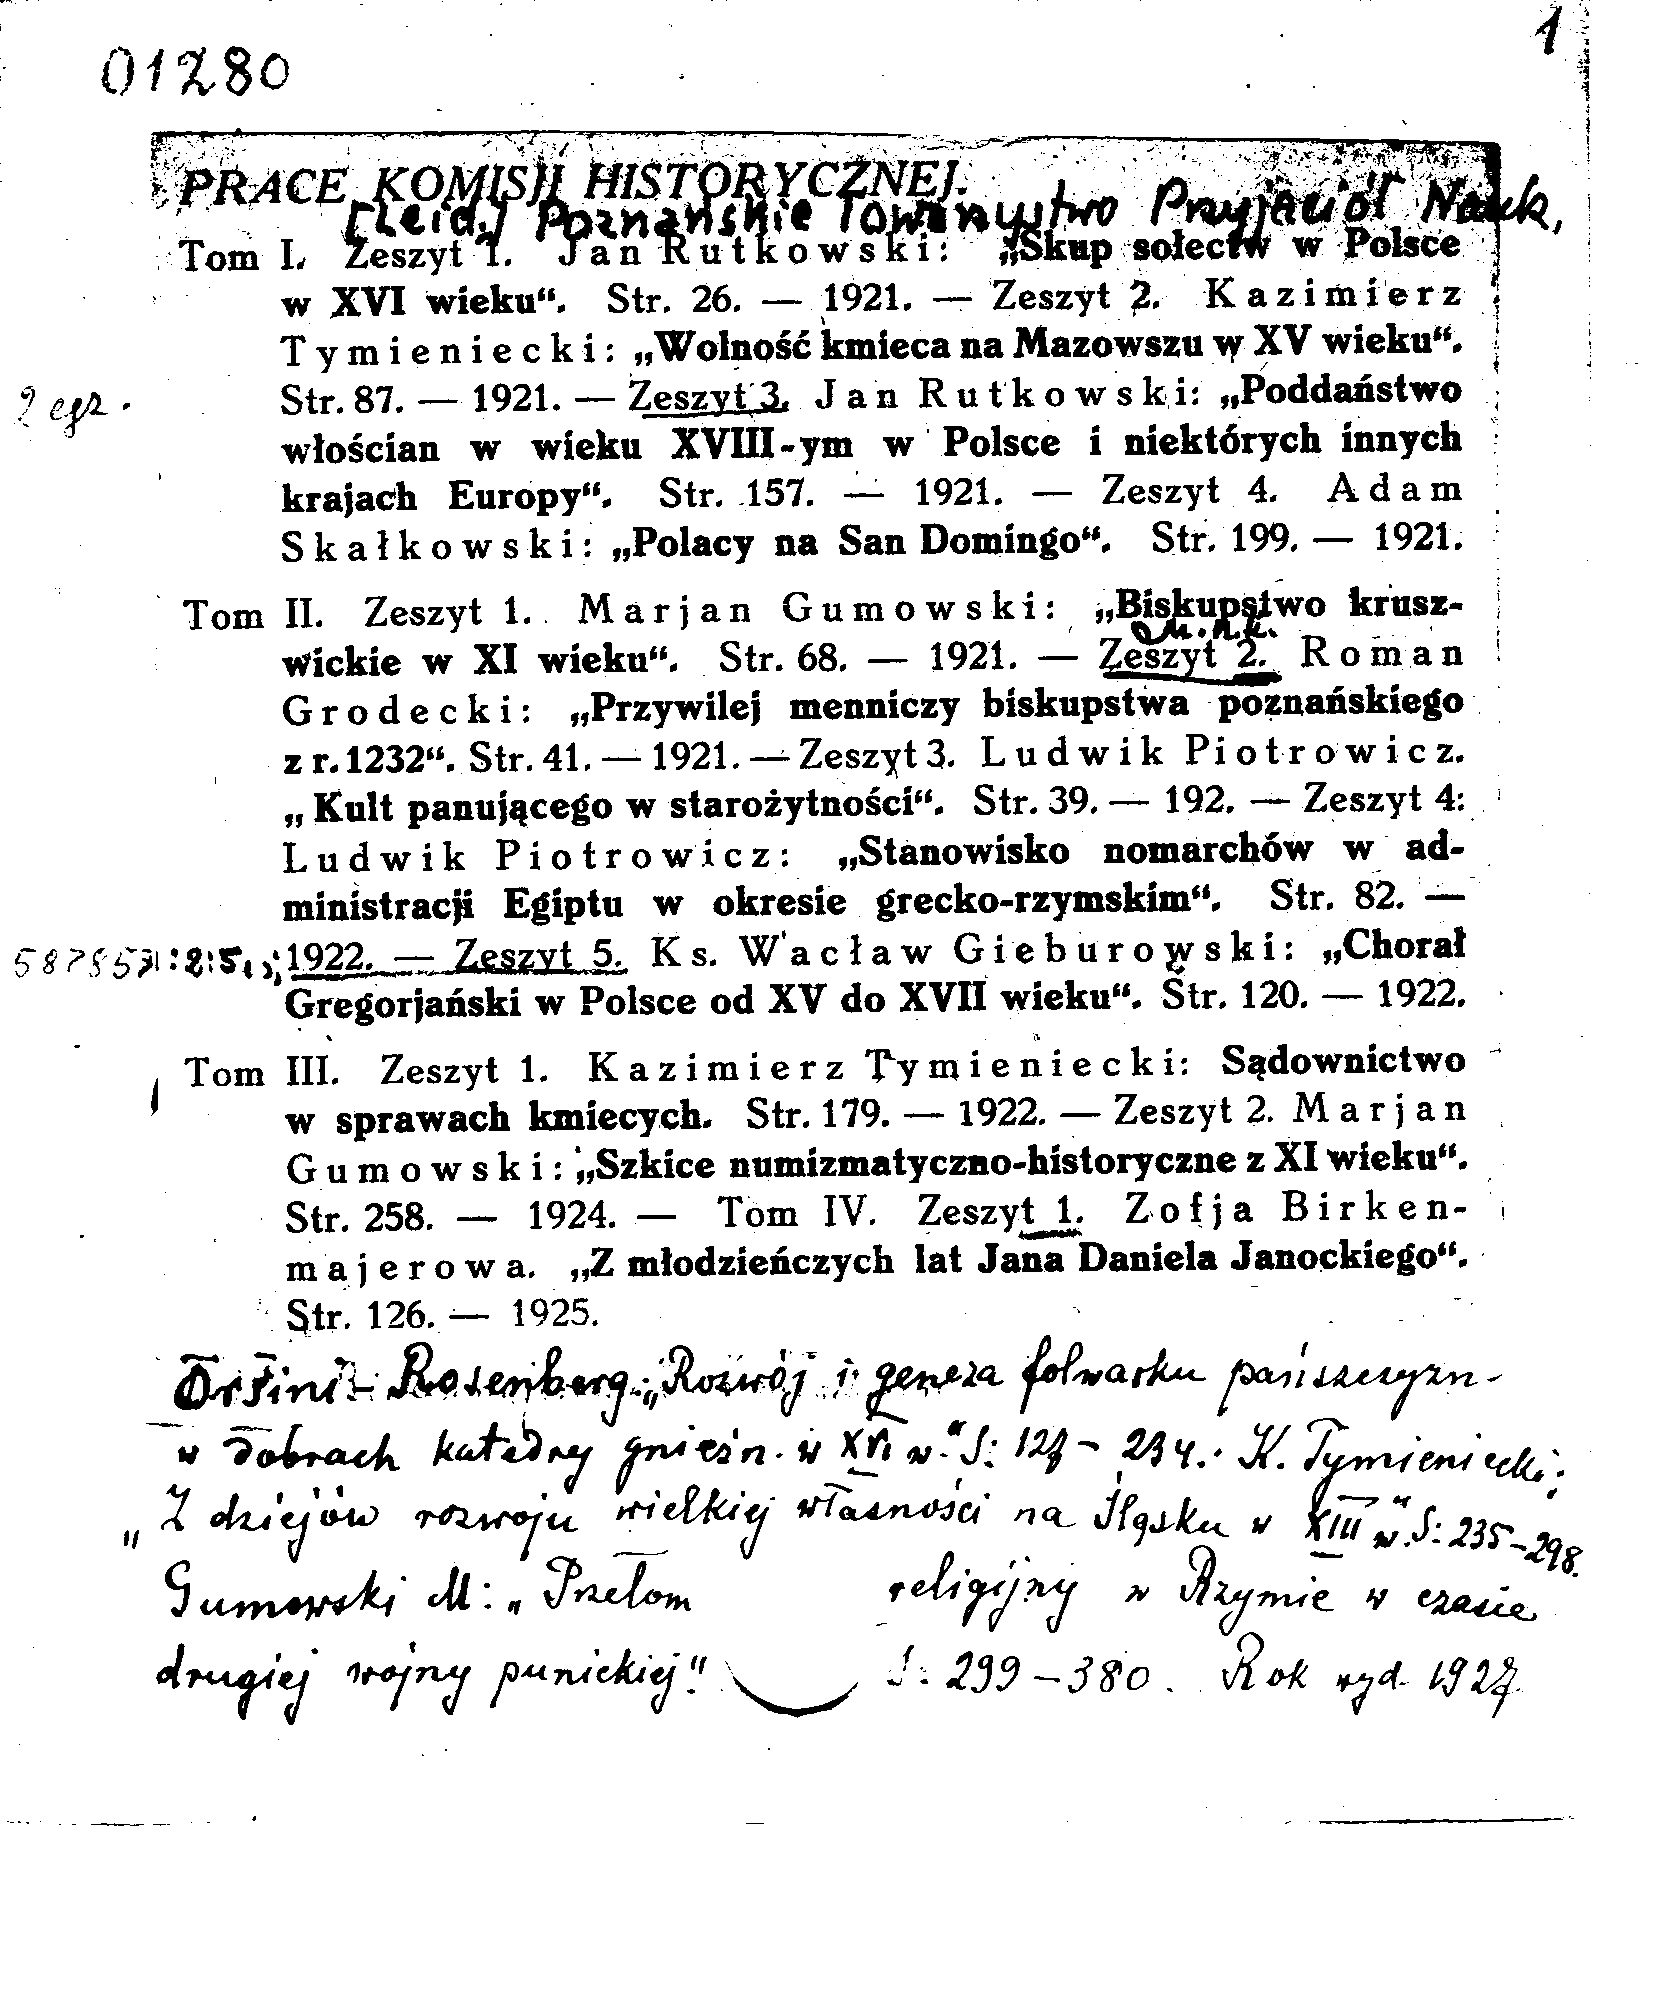 1
01280
PRACE KOMISJI HISTORYCZNEJ.
Poznańskie Towarzystwo Przyjaciół Nauk,
Tom I. Zeszyt 1. Jan Rutkowski: „Skup sołectw w Polsce
w XVI wieku“. Str. 26. — 1921. — Zeszyt 2. Kazimierz
Tymieniecki: „Wolność kmieca na Mazowszu w XV wieku“.
2 egz. Str. 87. — 1921. — Zeszyt 3. Jan Rutkowski: „Poddaństwo
włościan w wieku XVIII-ym w Polsce i niektórych innych
krajach Europy“. Str. 157. — 1921. — Zeszyt 4. Adam
Skałkowski: „Polacy na San Domingo“. Str. 199. — 1921.
Tom II. Zeszyt 1. Marjan Gumowski: „Biskupstwo krusz-
wickie w XI wieku“. Str. 68. — 1921. — Zeszyt 2. Roman
Grodecki: „Przywilej menniczy biskupstwa poznańskiego
z r. 1232“. Str. 41. — 1921. — Zeszyt 3. Ludwik Piotrowicz.
„Kult panującego w starożytności“. Str. 39. — 192. — Zeszyt 4:
Ludwik Piotrowicz: „Stanowisko nomarchów w ad-
ministracji Egiptu w okresie grecko-rzymskim“. Str. 82. —
1922. — Zeszyt 5. Ks. Wacław Gieburowski: „Chorał
Gregorjański w Polsce od XV do XVII wieku“. Str. 120. — 1922.
Tom III. Zeszyt 1. Kazimierz Tymieniecki: Sądownictwo
w sprawach kmiecych. Str. 179. — 1922. — Zeszyt 2. Marjan
Gumowski: „Szkice numizmatyczno-historyczne z XI wieku“.
Str. 258. — 1924. — Tom IV. Zeszyt 1. Zofja Birken-
majerowa. „Z młodzieńczych lat Jana Daniela Janockiego“.
Str. 126. — 1925.
Orsini - Rosenberg: „Rozwój i geneza folwarku pańszczyzn-
w dobrach katedry gnieźn. w XVI w.“ S: 127 - 234. K. Tymieniecki:
„Z dziejów rozwoju wielkiej własności na Śląsku w XIII w.“ S: 235-298.
Gumowski M: „Przełom religijny w Rzymie w czasie
drugiej wojny punickiej“ S: 299-380. Rok wyd. 1927